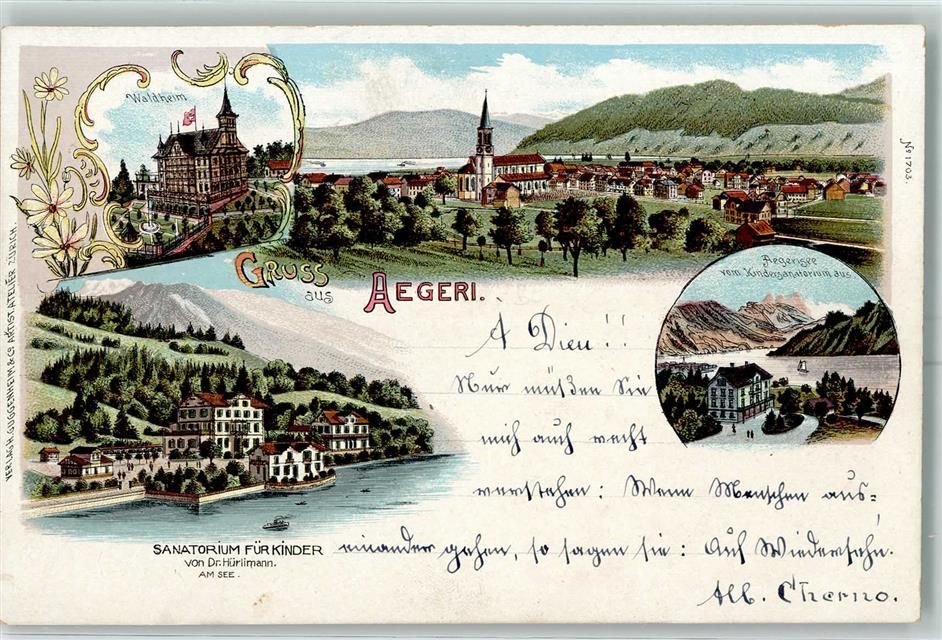 Waldheim
No 1703.
GRUSS
aus
AEGERI.
Aegerisee
vom Kindersanatorium aus
A Dieu!!
Nur müßen Sie
mich auch recht
verstehen: Wenn Menschen aus-
einander gehen, so sagen sie: Auf Wiedersehn.
Alb. Cherno.
SANATORIUM FÜR KINDER
von Dr. Hürlimann.
AM SEE.
VERLAG H. GUGGENHEIM & Co. ARTIST. ATELIER, ZÜRICH.